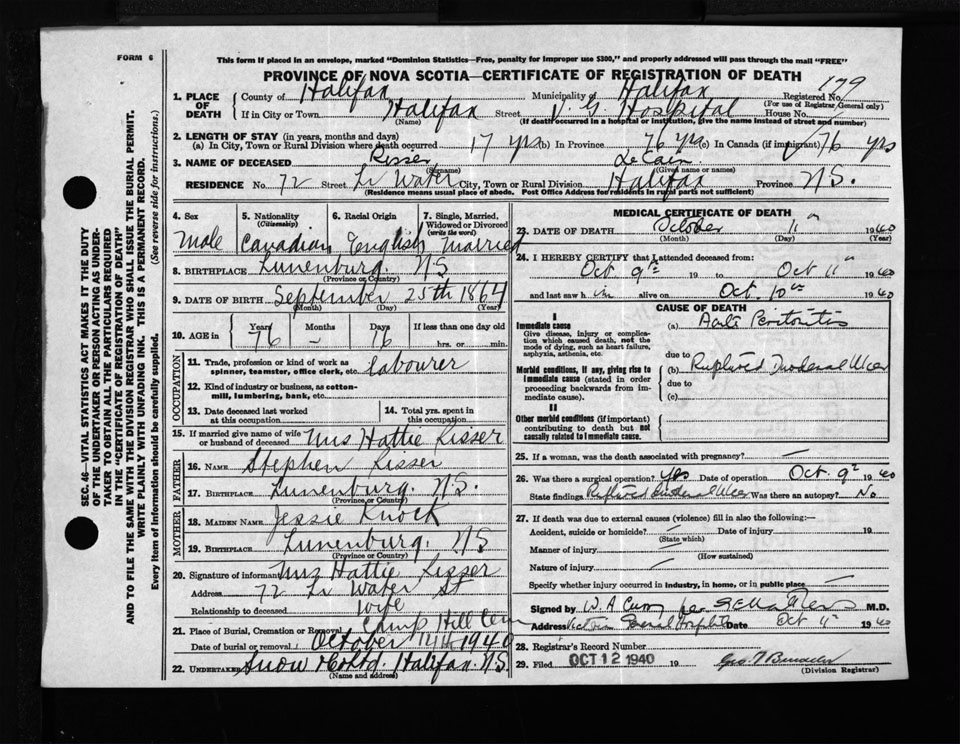 FORM 6
This form if placed in an envelope, marked "Dominion Statistics—Free, penalty for improper use $300," and properly addressed will pass through the mail "FREE"
PROVINCE OF NOVA SCOTIA—CERTIFICATE OF REGISTRATION OF DEATH
SEC. 46—VITAL STATISTICS ACT MAKES IT THE DUTY
OF THE UNDERTAKER OR PERSON ACTING AS UNDER-
TAKER TO OBTAIN ALL THE PARTICULARS REQUIRED
IN THE "CERTIFICATE OF REGISTRATION OF DEATH"
AND TO FILE THE SAME WITH THE DIVISION REGISTRAR WHO SHALL ISSUE THE BURIAL PERMIT.
WRITE PLAINLY WITH UNFADING INK. THIS IS A PERMANENT RECORD.
Every item of information should be carefully supplied. (See reverse side for instructions.)
1. PLACE OF DEATH County of Halifax Municipality of Halifax Registered No. 179
(For use of Registrar General only)
If in City or Town Halifax Street V. G. Hospital House No.
(Name) (If death occurred in a hospital or institution, give the name instead of street and number)
2. LENGTH OF STAY (in years, months and days)
(a) In City, Town or Rural Division where death occurred 17 yrs (b) In Province 76 yrs (c) In Canada (if immigrant) 76 yrs
3. NAME OF DECEASED Risser LeCain
(Surname) (Given name or names)
RESIDENCE No. 72 Street Lr Water City, Town or Rural Division Halifax Province N.S.
(Residence means usual place of abode. Post Office Address for residents in rural parts not sufficient)
4. Sex 5. Nationality (Citizenship) 6. Racial Origin 7. Single, Married, Widowed or Divorced (write the word)
Male Canadian English Married
8. BIRTHPLACE Lunenburg. N.S
(Province or Country)
9. DATE OF BIRTH September 25th 1864
(Month) (Day) (Year)
10. AGE in Years Months Days If less than one day old
76 – 16 hrs. or min.
OCCUPATION
11. Trade, profession or kind of work as spinner, teamster, office clerk, etc. Labourer
12. Kind of industry or business, as cotton-mill, lumbering, bank, etc.
13. Date deceased last worked at this occupation 14. Total yrs. spent in this occupation
15. If married give name of wife or husband of deceased Mrs Hattie Risser
FATHER
16. NAME Stephen Risser
17. BIRTHPLACE Lunenburg. N.S.
(Province or Country)
MOTHER
18. MAIDEN NAME Jessie Knock
19. BIRTHPLACE Lunenburg. N.S
(Province or Country)
20. Signature of informant Mrs Hattie Risser
Address 72 Lr Water St
Relationship to deceased wife
21. Place of Burial, Cremation or Removal Camp Hill Cem
Date of burial or removal October 1940
22. UNDERTAKER Snow & Co Ltd. Halifax. N.S.
(Name and address)
MEDICAL CERTIFICATE OF DEATH
23. DATE OF DEATH October 11 1940
(Month) (Day) (Year)
24. I HEREBY CERTIFY that I attended deceased from:
Oct 9th 19 to Oct 11th 1940
and last saw him alive on Oct. 10th 1940
CAUSE OF DEATH
I
Immediate cause
Give disease, injury or complication which caused death, not the mode of dying, such as heart failure, asphyxia, asthenia, etc.
(a) Peritonitis
due to
Morbid conditions, if any, giving rise to immediate cause (stated in order proceeding backwards from immediate cause).
(b) Ruptured Duodenal Ulcer
due to
(c)
II
Other morbid conditions (if important) contributing to death but not causally related to immediate cause.
25. If a woman, was the death associated with pregnancy? —
26. Was there a surgical operation? Yes Date of operation Oct. 9th 1940
State findings Ruptured Duodenal Ulcer Was there an autopsy? No
27. If death was due to external causes (violence) fill in also the following:—
Accident, suicide or homicide? Date of injury 19
(State which)
Manner of injury
(How sustained)
Nature of injury
Specify whether injury occurred in industry, in home, or in public place —
Signed by W. A. Curry per M.D.
Address Victoria General Hospital Date Oct 11 1940
28. Registrar's Record Number
29. Filed OCT 12 1940 19
(Division Registrar)